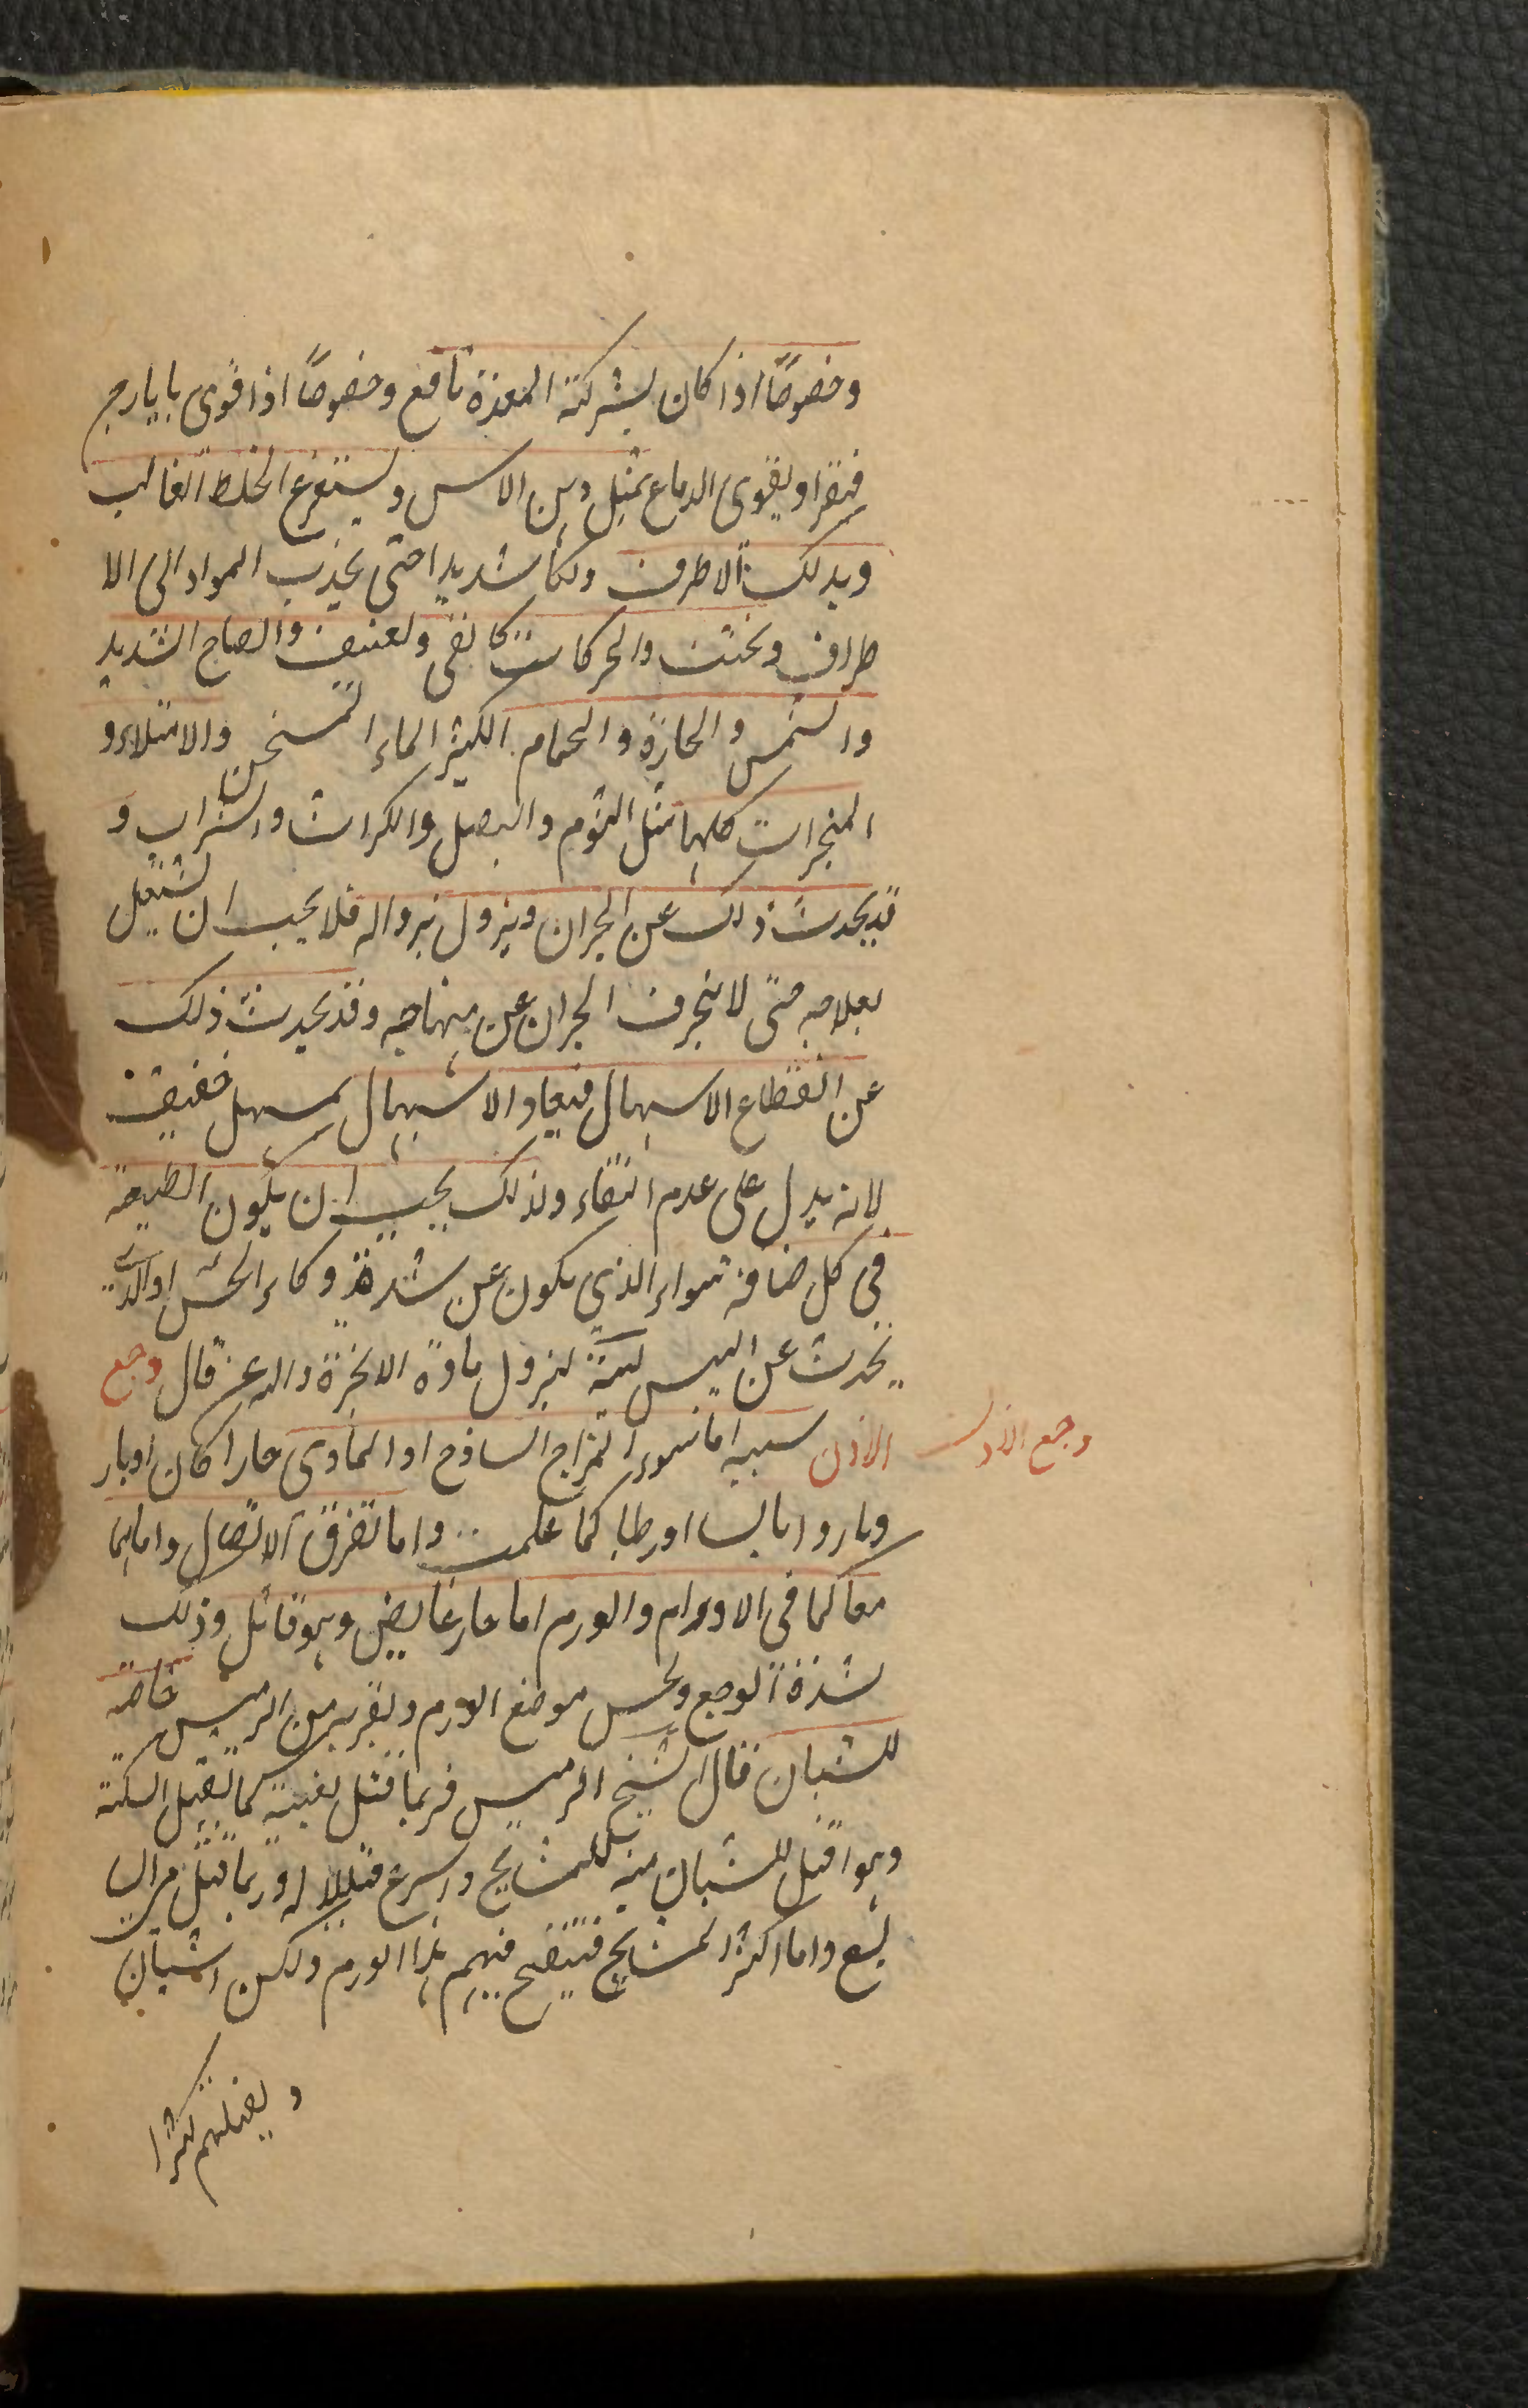 وخصوصًا اذا كان بشركة المعدة نافع وخصوصًا اذا قوى بايارج
فيقرا ويقوى الدماغ بمثل دهن الاس ويستفرغ الخلط الغالب
ويدلك الاطرف دلكا شديدا حتى يجذب المواد الى الا
طراف ويجتنب والحركات كالقى ولعنيف والصاح الشديد
والشمس والحارة والحمام الكثير الماء المسخن والامتلاء و
المبخرات كلها مثل الثوم والبصل والكراث والشراب و
قد يحدث ذلك عن البحران ويزول بزواله فلا يجب ان يشتغل
بعلاجه حتى لا ينحرف البحران عن منهاجه وقد يحدث ذلك
عن انقطاع الاسهال فيعاد الاسهال بمسهل خفيف
لانه يدل على عدم النقاء ولذلك يجب ان يكون الطبيعة
فى كل سواء الذي يكون عن شدة وكاء الحس او الذى
يحدث عن اليبس لينة لنزول مادة الابخرة والدعن قال وجع
الاذن سببه اما سوء المزاج الساذج او المادى حارا كان اوبار
وبارد ا يابسا اورطبا كما علمت واما تفرق الاتصال واما هما
معا كما فى الاورام والورم اما حار غايض وهو قاتل وذلك
لشدة الوجع ولحس موضع الورم ولقربه من الرئيس خاصة
للشبان قال الشيخ الرئيس فربما قتل بغتة كما تقتل السكتة
وهو اقتل للشبان منه للمشايخ واسرع قتلا له وربما قتل فى السا
بع واما اكثر المشايخ فينضج فيهم هذا الورم ولكن الشبان
ويقتلهم كثيرا
وجع الاذن